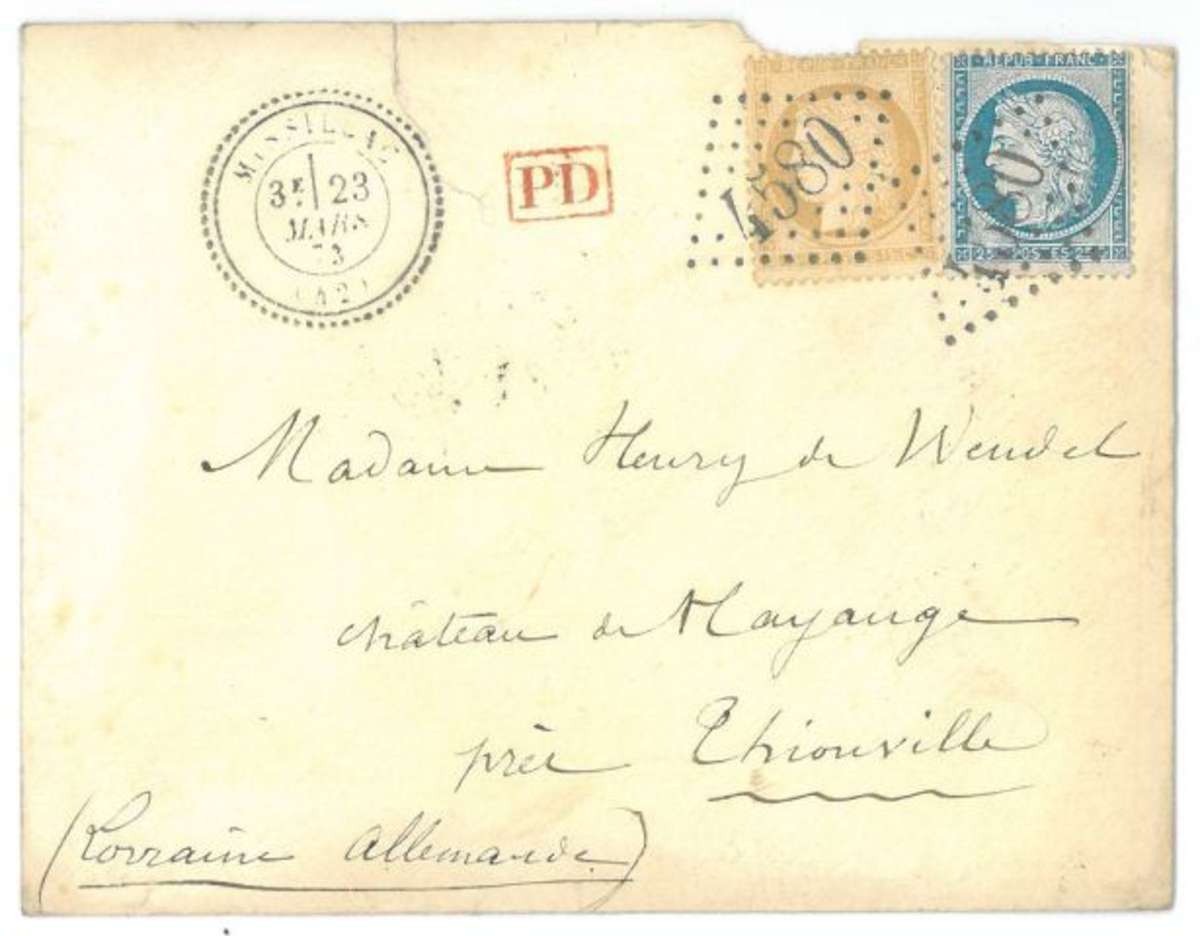 MISSILLAC
3E 23
MARS
73
(42)
PD
4580
REPUB FRANC
4580
25 POSTES 25
Madame Henry de Wendel
château de Hayange
près Thionville
(Lorraine allemande)